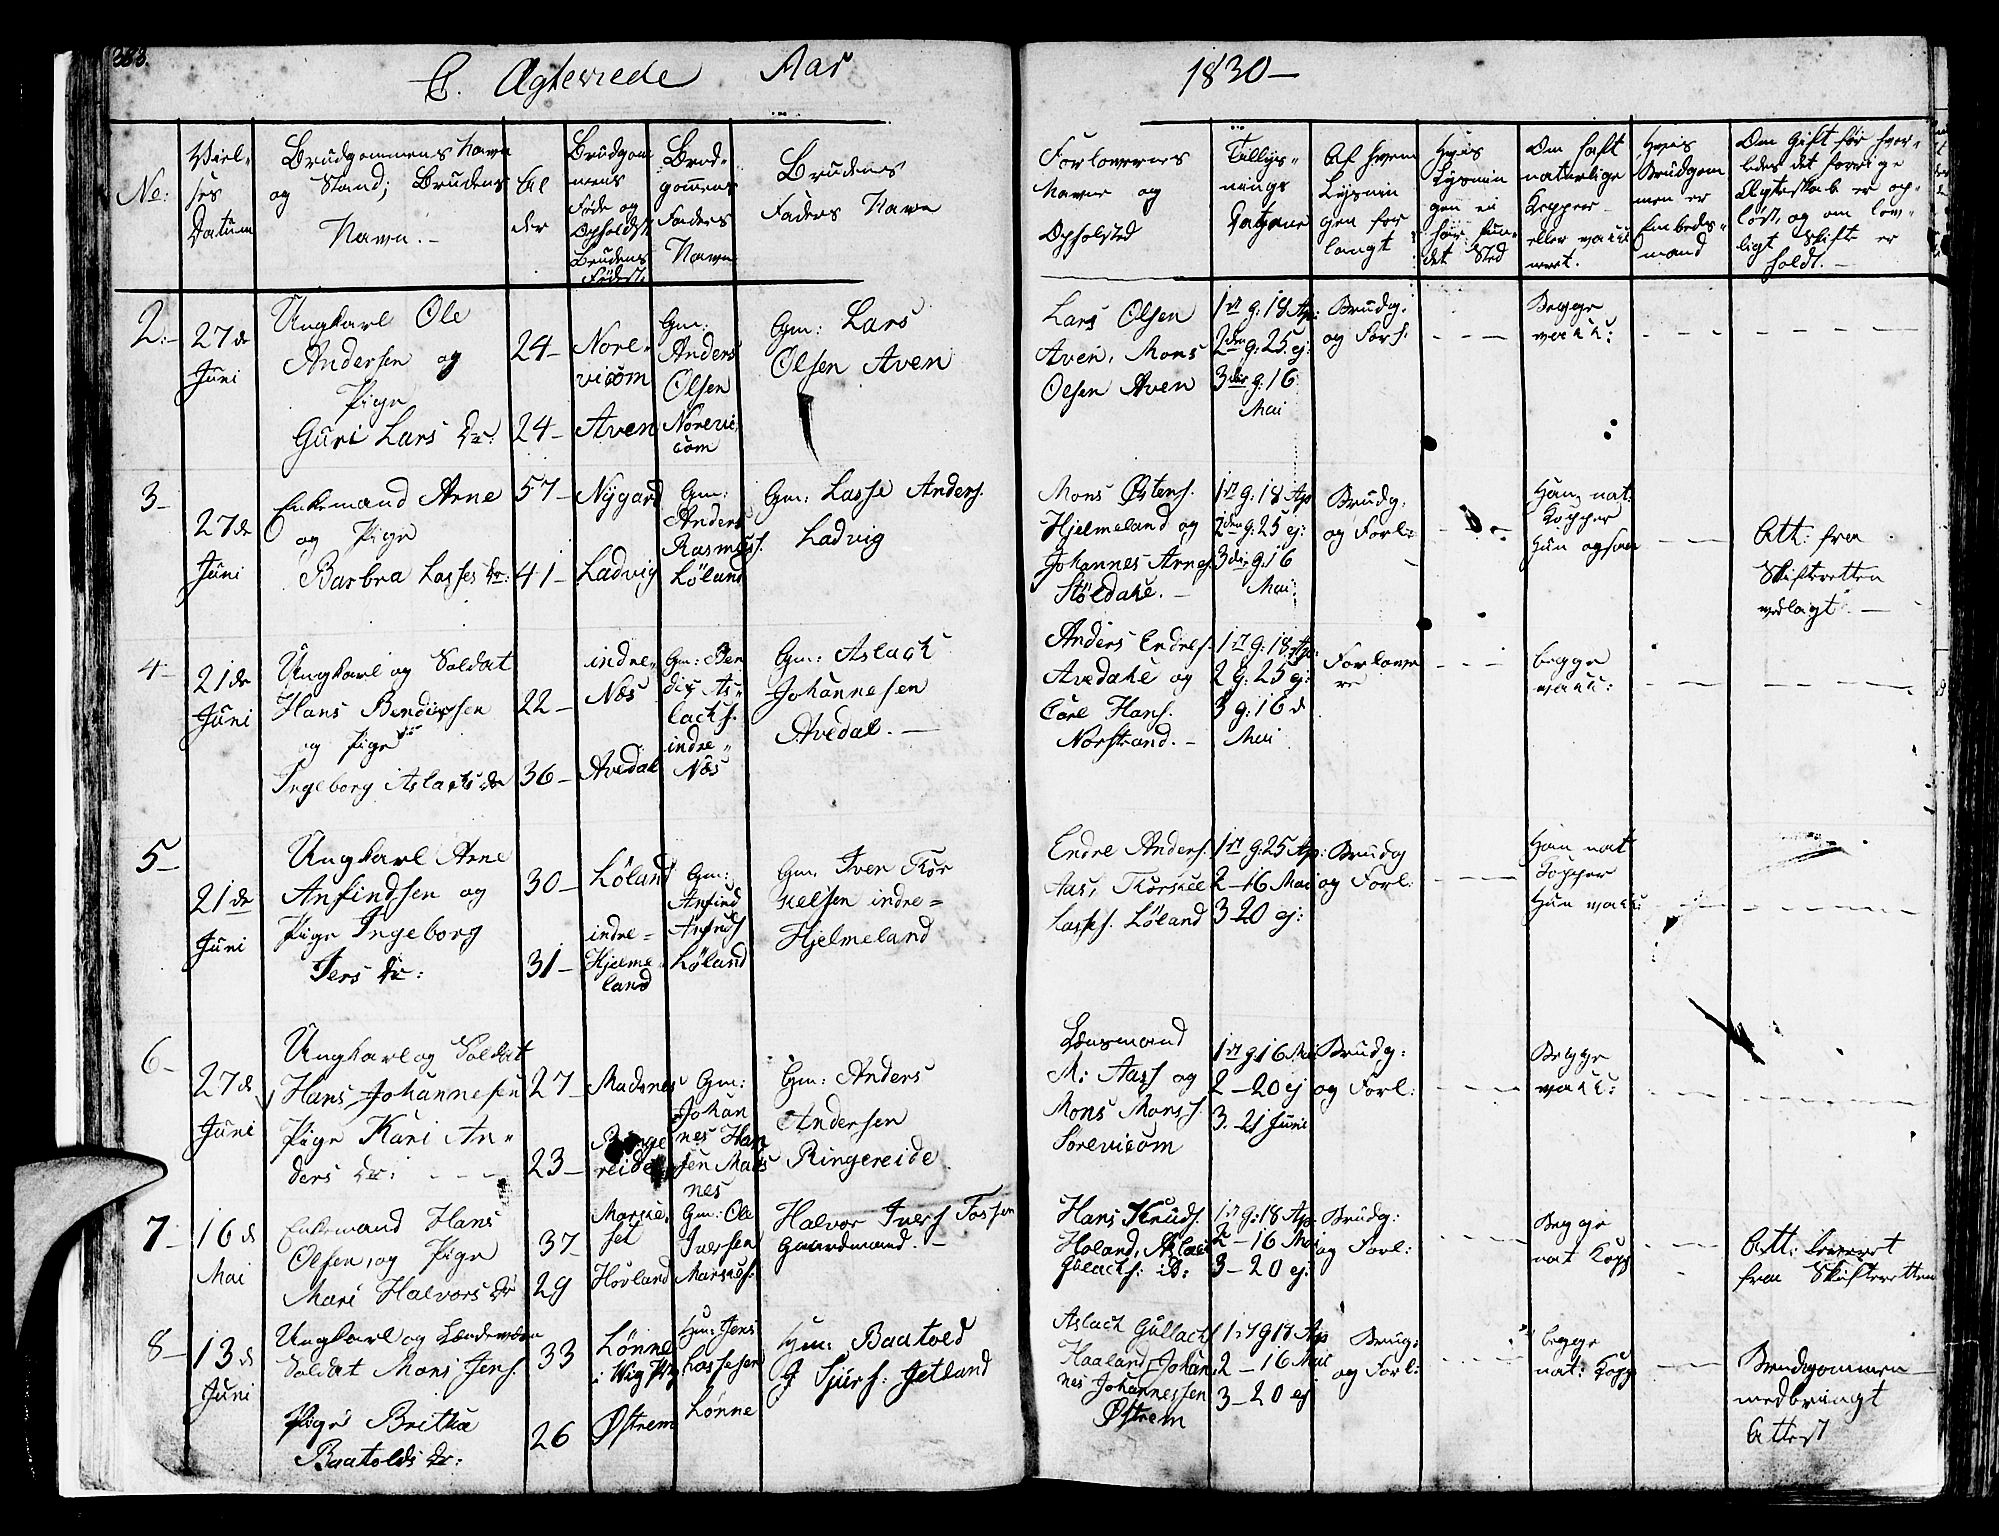 C. Ægteviede Aar 1830-
No:
Viel-
ses
Datum
Brudgommens Navn
og Stand; Brudens
Navn.-
Al
der
Brudgom
mens
Føde og
Opholdst.
Brudens
Fødest.
Brud-
gomens
Faders
Navn
Brudens
Faders Navn
Forlovernes
Navne og
Opholsted
Tillys-
nings
Datoerne
Af hvem
Lysnin
gen for
langt
Hvis
Lysnin
gen ei
har fun-
det Sted
Om haft
naturlige
Kopper
eller vacci
neret.
Hvis
Brudgom
men er
Embeds-
mand
Om Gift før hvor-
ledes det forrige
Ægteskab er op-
løst, og om lov-
ligt Skifte er
holdt.-
2.-
27de
Juni
Ungkarl Ole
Andersen og
Pige
Guri Lars dr.
24-
24-
Nore-
vicom
Aven
Gm:
Anders
Olsen
Norevi
com
Gm: Lars
Olsen Aven
Lars Olsen
Aven, Mons
Olsen Aven
1st g: 18 Ap:
2den g: 25. ej:
3die g: 16
Mai
Brudg.
og Forl.
Begge
vacc:
3-
27de
Juni
Enkemand Arne
og Pige
Barbra Lasses dr:
57-
41-
Nygard
Ladvig
Gm:
Anders
Rasmuss.
Løland
Gm: Lasse Anders.
Ladvig
Mons Østens.
Hjelmeland og
Johannes Arnes.
Støldahl.-
1st g: 18 Ap
2den g: 25 ej:
3die g: 16
Mai
Brudg.
og Forl:
Han nat.
Kopper
Hun ogsaa
Att: fra
Skifteretten
vedlagt.-
4-
21de
Juni
Ungkarl og Soldat
Hans Bendixsen
og Pige
Ingeborg Aslachs dr
22-
36-
indre-
Næs
Avedal
Gm: Ben
dix As-
lachs.
indre-
Næs
Gm: Aslach
Johannesen
Avedal.-
Anders Endres.
Avedahl og
Carl Hans.
Norstrand.-
1st g: 18. Ap:
2 g: 25 ej:
3 g: 16 d
Mai
Forlover
ne
begge
vacc:
5-
21de
Juni
Ungkarl Arne
Anfindsen og
Pige Ingeborg
Ivers dr:
30-
31-
Løland
indre-
Hjelme
land
Gm:
Anfind
Løland
Gm. Iver Tor
kelsen indre-
Hjelmeland
Endre Anders.
Aas, Thorkeel
Lasses. Løland
1st g: 25 Ap:
2-16 Mai
3-20 ej:
Brudg
og Forl:
Han nat
Kopper
Hun vacc:
6-
27de
Juni
Ungkarl og Soldat
Hans Johannesen
Pige Kari An-
ders dr:
27
23-
Madsnes
Ringe
reide
Gm:
Johan
nes Han
sen Mads
nes
Gm: Anders
Andersen
Ringereide
Lensmand
M: Aass og
Mons Monss.
Sorevicom
1st g 16 Mai
2-20 ej
3.-21 Juni
Brudg:
og Forl:
Begge
vacc:
7-
16 d
Mai
Enkemand Hans
Olsen, og Pige
Mari Halvors dr
37-
29
Hovland
Gm: Ole
Iversen
Halvor Ivers Fossen
Gaardmand.-
Hans Knuds.
Holand, Aslac
Gulachs: ib:
1st g: 18 Ap
2-16 Mai
3-20 ej:
Brudg:
og Forl:
Begge
nat Kopp
Att:
fra Skifteretten
8-
13 d
Juni
Ungkarl og
Soldat Mons Jens.
Pige Britha
Baatolds dr:
33
26
Lønne
Østrem
Jens
Lassesen
Lønne
Baatold
Sjurs: Jetland
Aslach Gullachs
Haaland, Johan
nes Johannessen
Østrem
1st g 18 Ap
2-16 Mai
3-20 ej
Brug:
og Forl:
begge
nat: Kopp
Brudgommen
medbringt
Attest